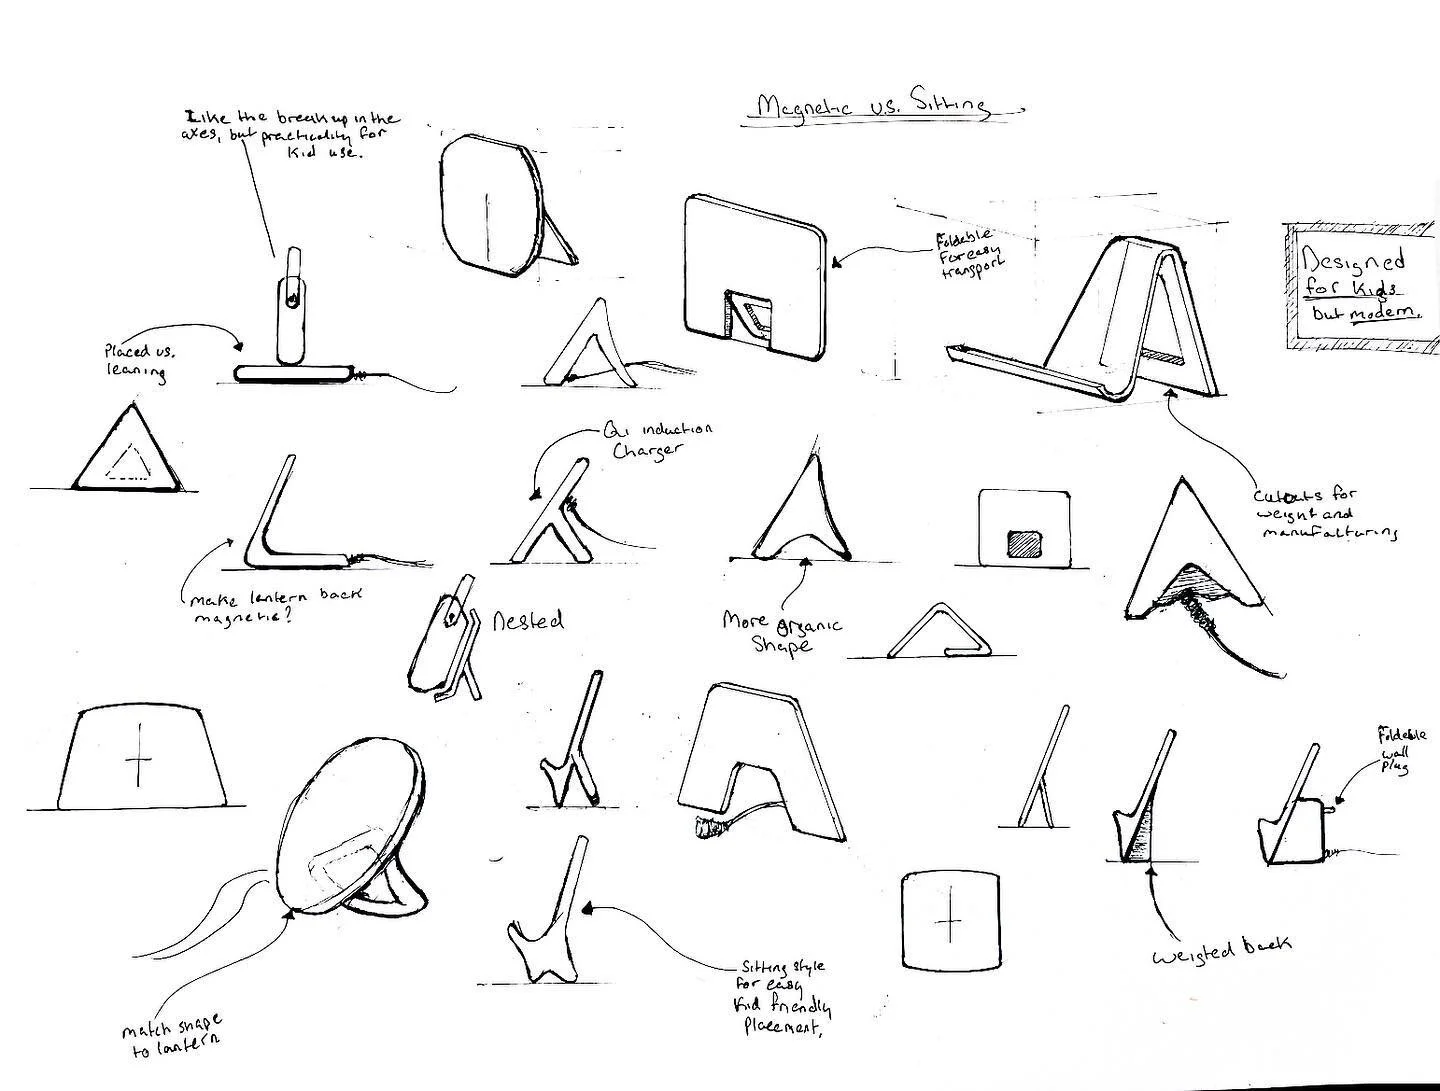 Magnetic vs. Sitting
Like the breakup in the
axes, but practicality for
Kid use.
Foldable
For easy
transport
Designed
for Kids
but modern.
Placed vs.
leaning
Qi induction
Charger
Cutouts for
weight and
manufacturing
make lantern back
magnetic?
Nested
More organic
Shape
Foldable
wall
plug
weighted back
Sitting style
for easy
Kid friendly
placement,
match shape
to lantern